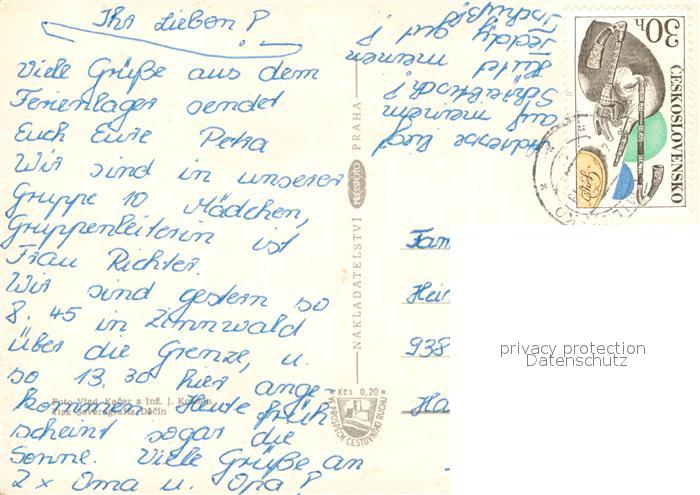 Ihr Lieben!
Viele Grüße aus dem
Ferienlager sendet
Euch Eure Petra
Wir sind in unserer
Gruppe 10 Mädchen,
Gruppenleiterin ist
Frau Richter.
Wir sind gestern so
8.45 in Zinnwald
über die Grenze, u.
so 13.30 hier ange-
kommen. Heute früh
scheint sogar die
Sonne. Viele Grüße an
2x Oma u. Opa!
Adresse liegt
auf meinem
Schreibtisch!
Teddy auf!
Tschüß!
Foto Vlad. Kačer a Inž. J.
Tisk Severografia Děčín
NAKLADATELSTVÍ PRESSFOTO PRAHA
Kčs 0,20
VE PROSPĚCH CESTOVNÍHO RUCHU
30h
ČESKOSLOVENSKO
Fam
Hein
938
Ha
privacy protection
Datenschutz